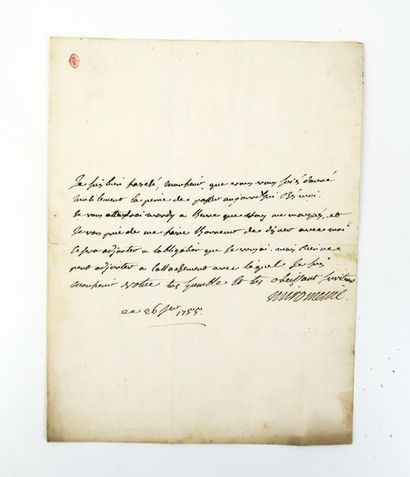 Je suis bien faché, monsieur, que vous vous soiés donné
inutilement la peine de passer aujourd'hui chés moi.
Je vous attendrai mardy a l'heure que vous me marqués, et
Je vous prie de me faire l'honneur de diner avec moi
Ce sera adjouter a l'obligation que Je vous ai. mais rien ne
peut adjouter a l'attachement avec lequel Je suis
monsieur votre tres humble et tres obeissant serviteur
miromenil
ce 26 1755.